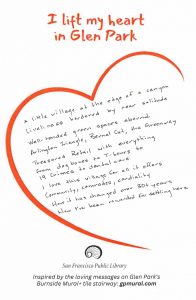 I lift my heart
in Glen Park
A little village at the edge of a canyon
Liveliness bordered by near solitude
Well-tended green spaces abound
Arlington Triangle, Bernal Cut, the Greenway
Treasured Retail with everything
from dog bones to T-bones to
Science to dental care
I love this village for all it offers
Community, comrades, cordiality
How it has changed over 30+ years
How I've been rewarded for settling here
San Francisco Public Library
Inspired by the loving messages on Glen Park's
Burnside Mural+ tile stairway: gpmural.com